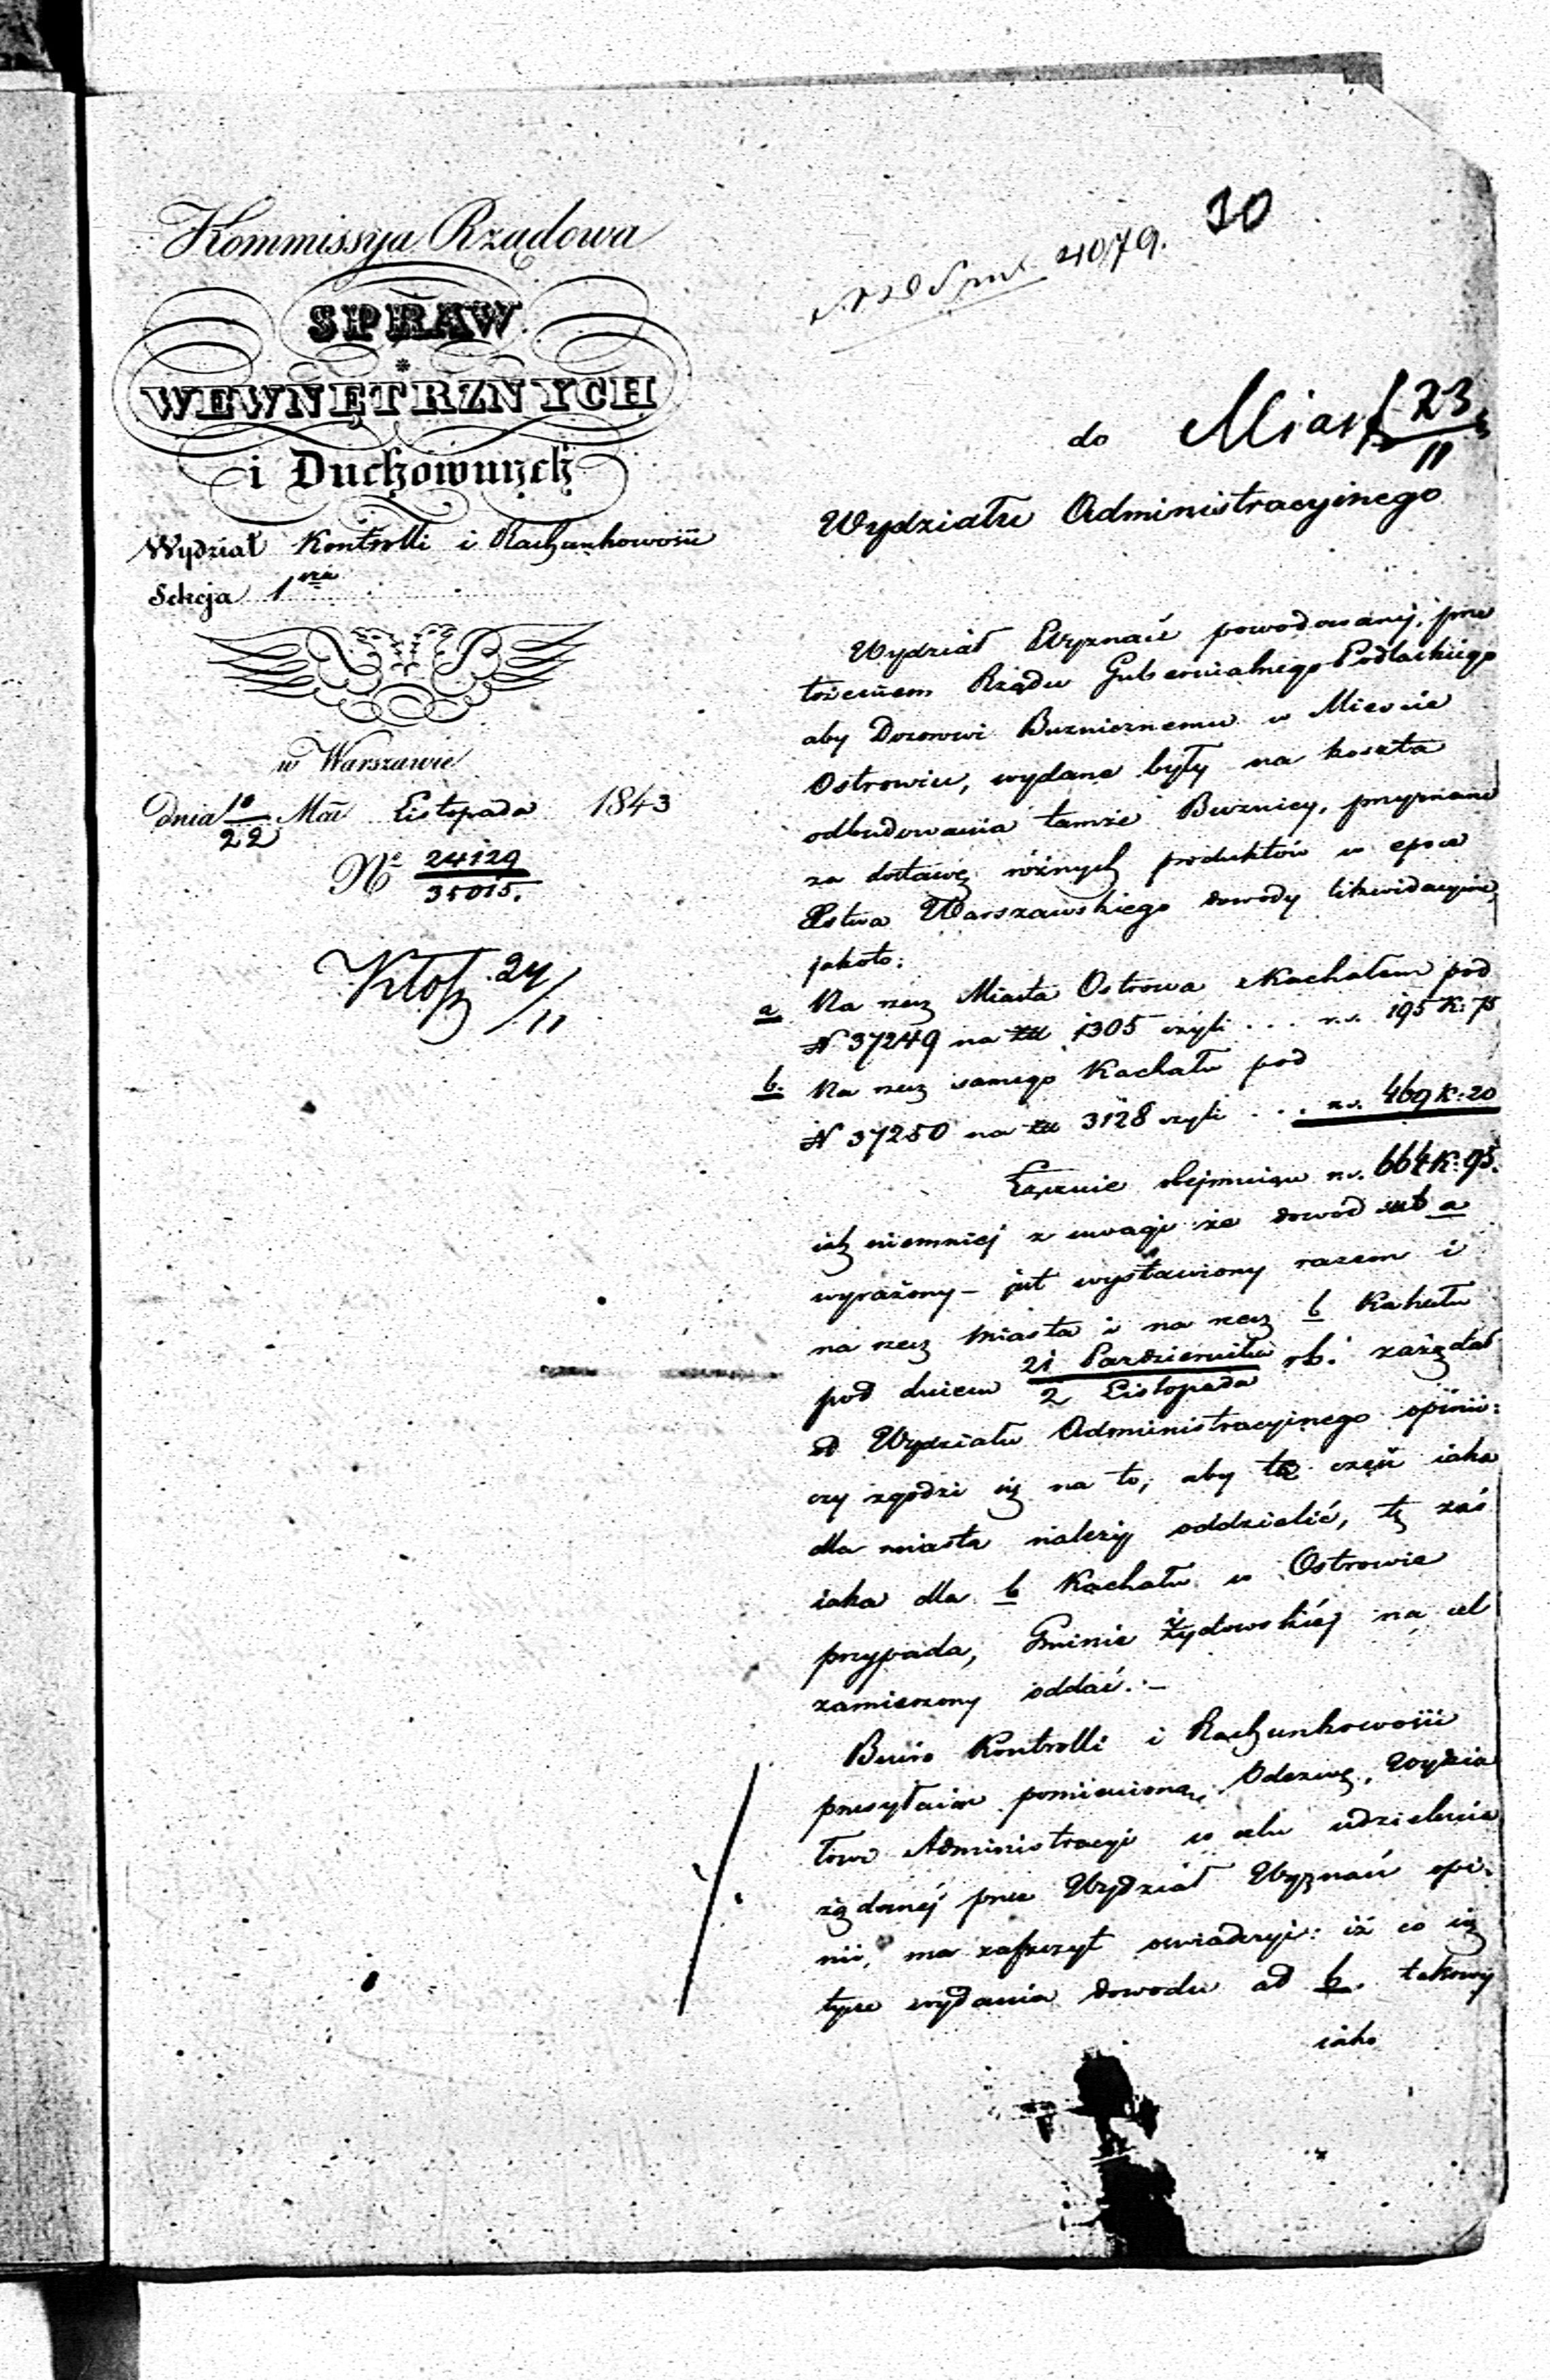 Kommissya Rządowa
SPRAW
WEWNĘTRZNYCH
i Duchownych
Wydział Kontrolli i Rachunkowości
Sekcja 1
w Warszawie
dnia 10/22 Mca Listopada 1843
N° 24129/35015.
24/11
10
4079.
do Miast 23/11
Wydziału Administracyinego
Wydział Wyznań powodowany, prze
łożeniem Rządu Gubernialnego Podlaskiego
aby Dozorowi Bużnicznemu w Mieście
Ostrowiu, wydane były na koszta
odbudowania tamże Bużnicy, przyznane
za dostawę różnych produktów w epoce
Xstwa Warszawskiego dowody likwidacyine,
jakoto:
a Na rzecz Miasta Ostrowa z Kachałem pod
N 37249 na zł 1305 czyli . . . r.s. 195 K: 75
b. Na rzecz samego Kachału pod
N 37250 na zł 3128 czyli . . . r.s. 469 K: 20
Łącznie obejmuiące r.s. 664 K: 95.
iak niemniej z uwagi że dowód sub a
wyrażony – jest wystawiony razem i
na rzecz Miasta i na rzecz b Kahału
pod dniem 21 Pazdziernika/2 Listopada rb. zażądał
od Wydziału Administracyinego opinii:
czy zgodzi się na to, aby tę część iaka
dla miasta należy oddzielić, tę zaś
iaka dla b Kachału w Ostrowie
przypada, Gminie Żydowskiéj na cel
zamierzony oddać. –
Biuro Kontrolli i Rachunkowości
przesyłaiąc pomienioną Odezwę, Wydzia
łowi Administracyi w celu udzielenia
żądanéj przez Wydział Wyznań opi-
nii, ma zaszczyt oswiadczyć: iż co się
tycze wydania dowodu ad b. takowy
iako